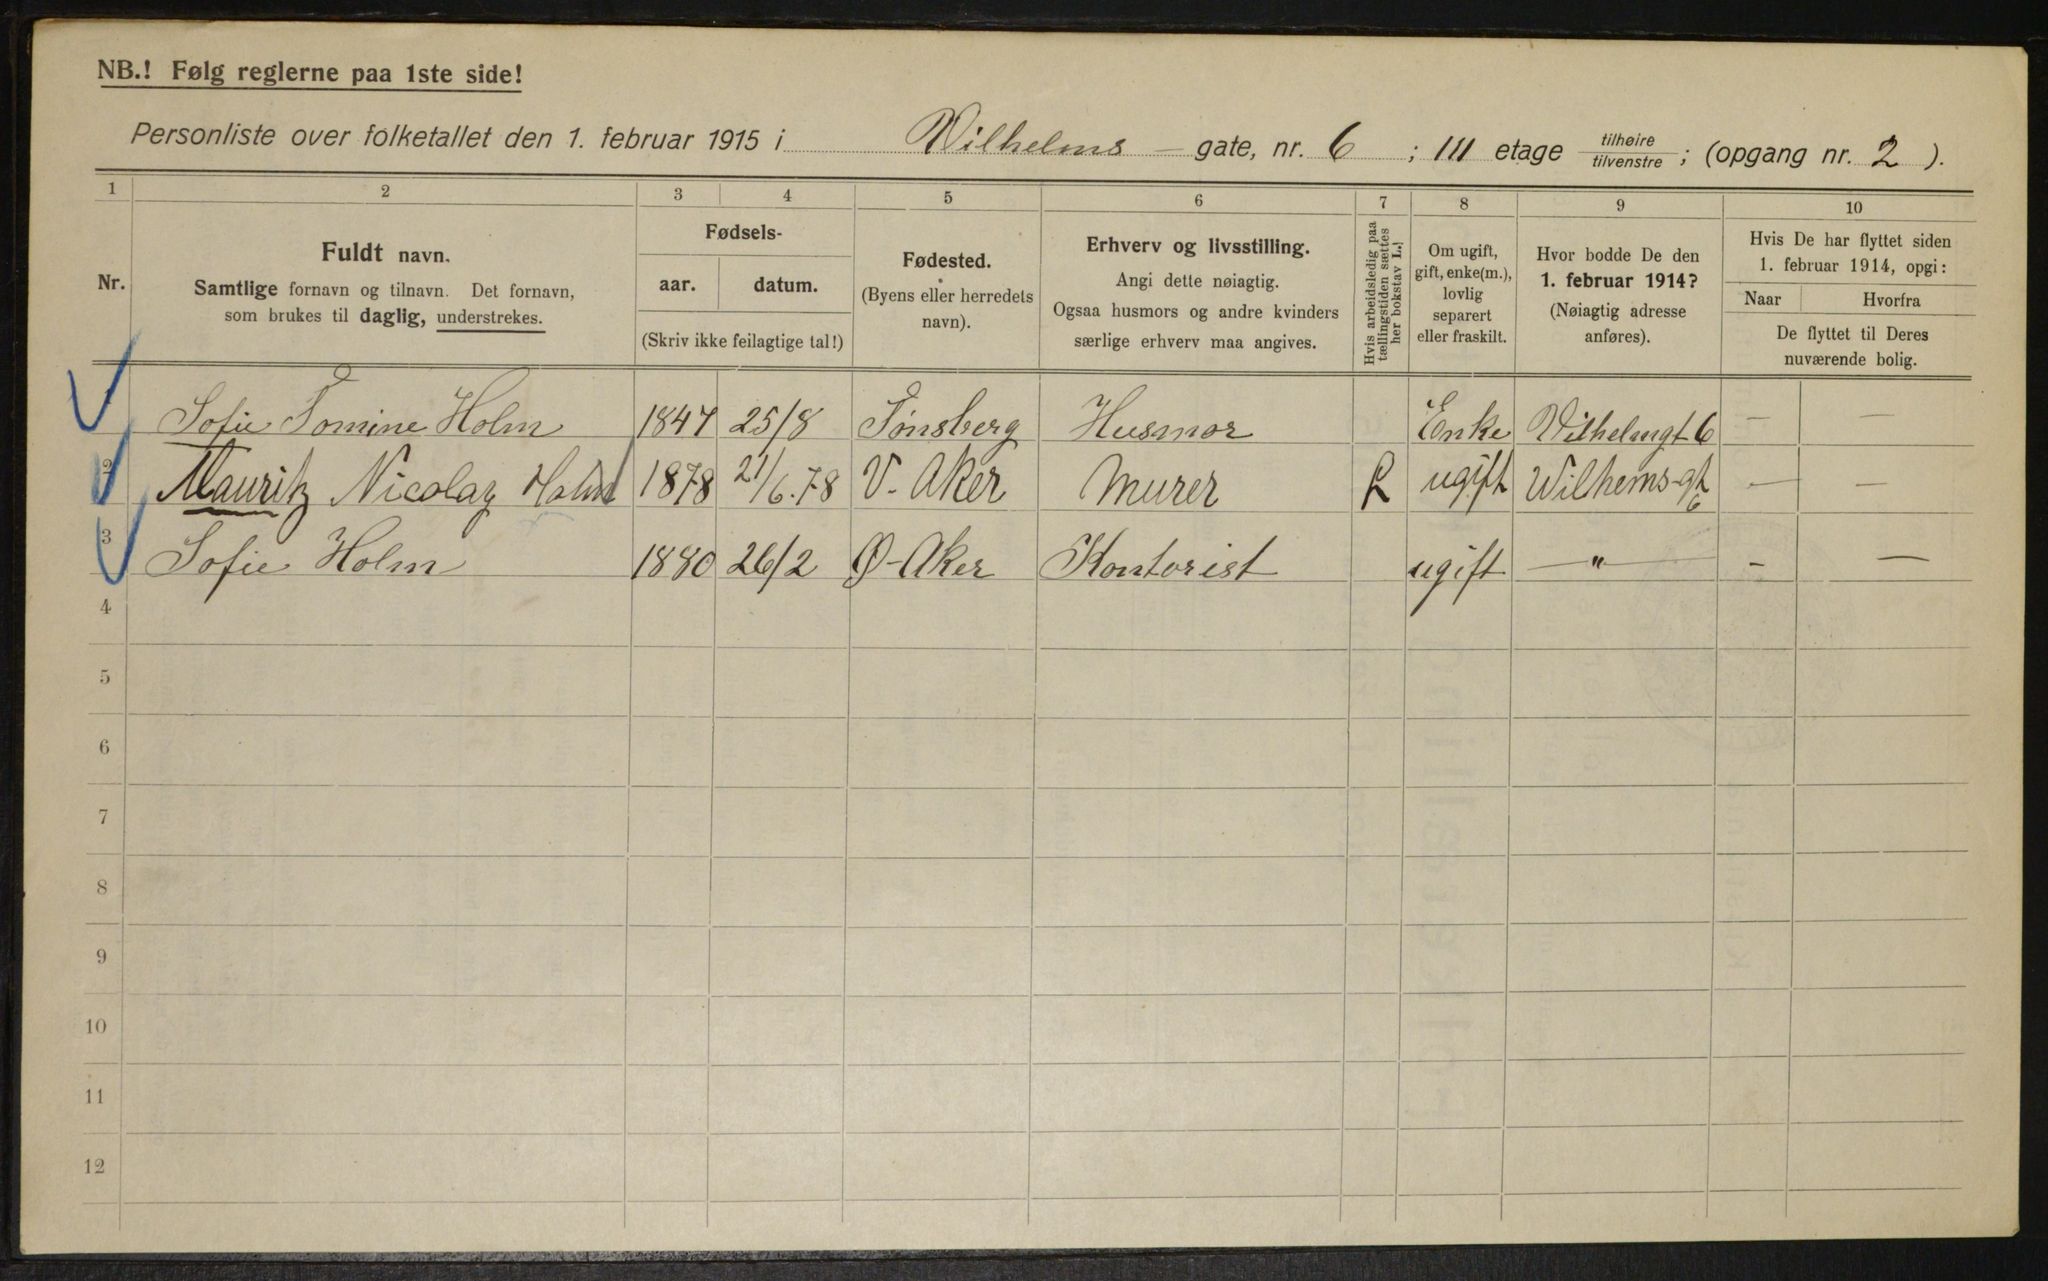 NB.! Følg reglerne paa 1ste side!
Personliste over folketallet den 1. februar 1915 i Wilhelms gate, nr. 6 ; III etage tilhøire tilvenstre ; (opgang nr. 2 ).
1 2 3 4 5 6 7 8 9 10
Nr.
Fuldt navn.
Samtlige fornavn og tilnavn. Det fornavn,
som brukes til daglig, understrekes.
Fødsels-
aar. datum.
(Skriv ikke feilagtige tal!)
Fødested.
(Byens eller herredets
navn).
Erhverv og livsstilling.
Angi dette nøiagtig.
Ogsaa husmors og andre kvinders
særlige erhverv maa angives.
Hvis arbeidsledig paa
tællingstiden sættes
her bokstav L.!
Om ugift,
gift, enke(m.),
lovlig
separert
eller fraskilt.
Hvor bodde De den
1. februar 1914?
(Nøiagtig adresse
anføres).
Hvis De har flyttet siden
1. februar 1914, opgi:
Naar Hvorfra
De flyttet til Deres
nuværende bolig.
Sofie Tomine Holm 1847 25/8 Tønsberg Husmor Enke Wilhelmsgt 6 — —
2 Mauritz Nicolay Holm 1878 21/6.78 V. Aker Murer L ugift Wilhems-gt 6 — —
3 Sofie Holm 1880 26/2 Ø-Aker Kontorist ugift —"— - —
4
5
6
7
8
9
10
11
12